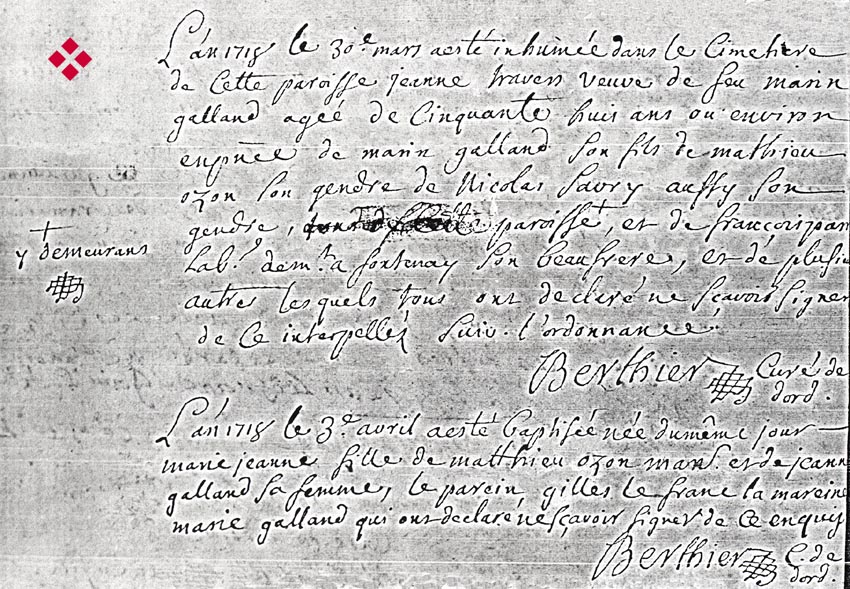 L'an 1718 le 30e. mars a esté inhumée dans le Cimetiere
de Cette paroisse jeanne travers veuve de feu marin
galland ageé de Cinquante huit ans ou environ
en pñce de marin galland Son fils de mathieu
ozon Son gendre de Nicolas Savry aussy Son
gendre, paroisse +, et de françois pan
+
y demeurans
Lab.r dem.t a fontenay Son beaufrere, et de plusieu
autres lesquels tous ont declaré ne sçavoir signer
de Ce interpellez Suiv. l'ordonnance.
Berthier Curé de
dord.
L'an 1718 le 3e. avril a esté baptisée née du même jour
marie jeanne fille de matthieu ozon man.r et de jeann
galland Sa femme, le parein, gilles le franc la mareine
marie galland qui ont declaré ne sçavoir signer de Ce enquis
Berthier C. de
dord.